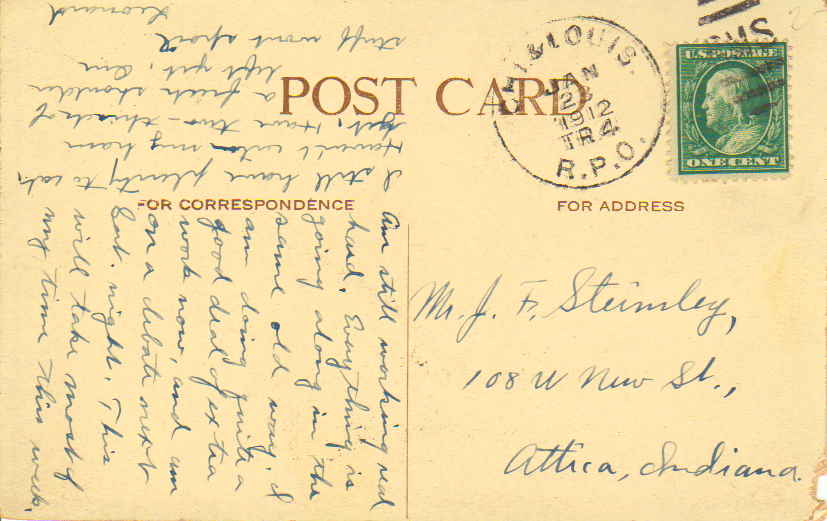 POST CARD
FOR CORRESPONDENCE
FOR ADDRESS
CHI. & ST. LOUIS.
JAN
1912
TR4
R.P.O.
U.S. POSTAGE
ONE CENT
Am still working real
hard. Everything is
going along in the
same old way. I
am doing quite a
good deal of extra
work now, and am
on a debate next
Sat. night. This
will take most of
my time this week.
I still have plenty to eat,
Haven't cut my ham
yet. Have two-thirds of
a fresh shoulder
left yet. Am
stuff wont spoil.
Leonard
Mr. J. F. Steimley,
108 W New St.,
Attica, Indiana.